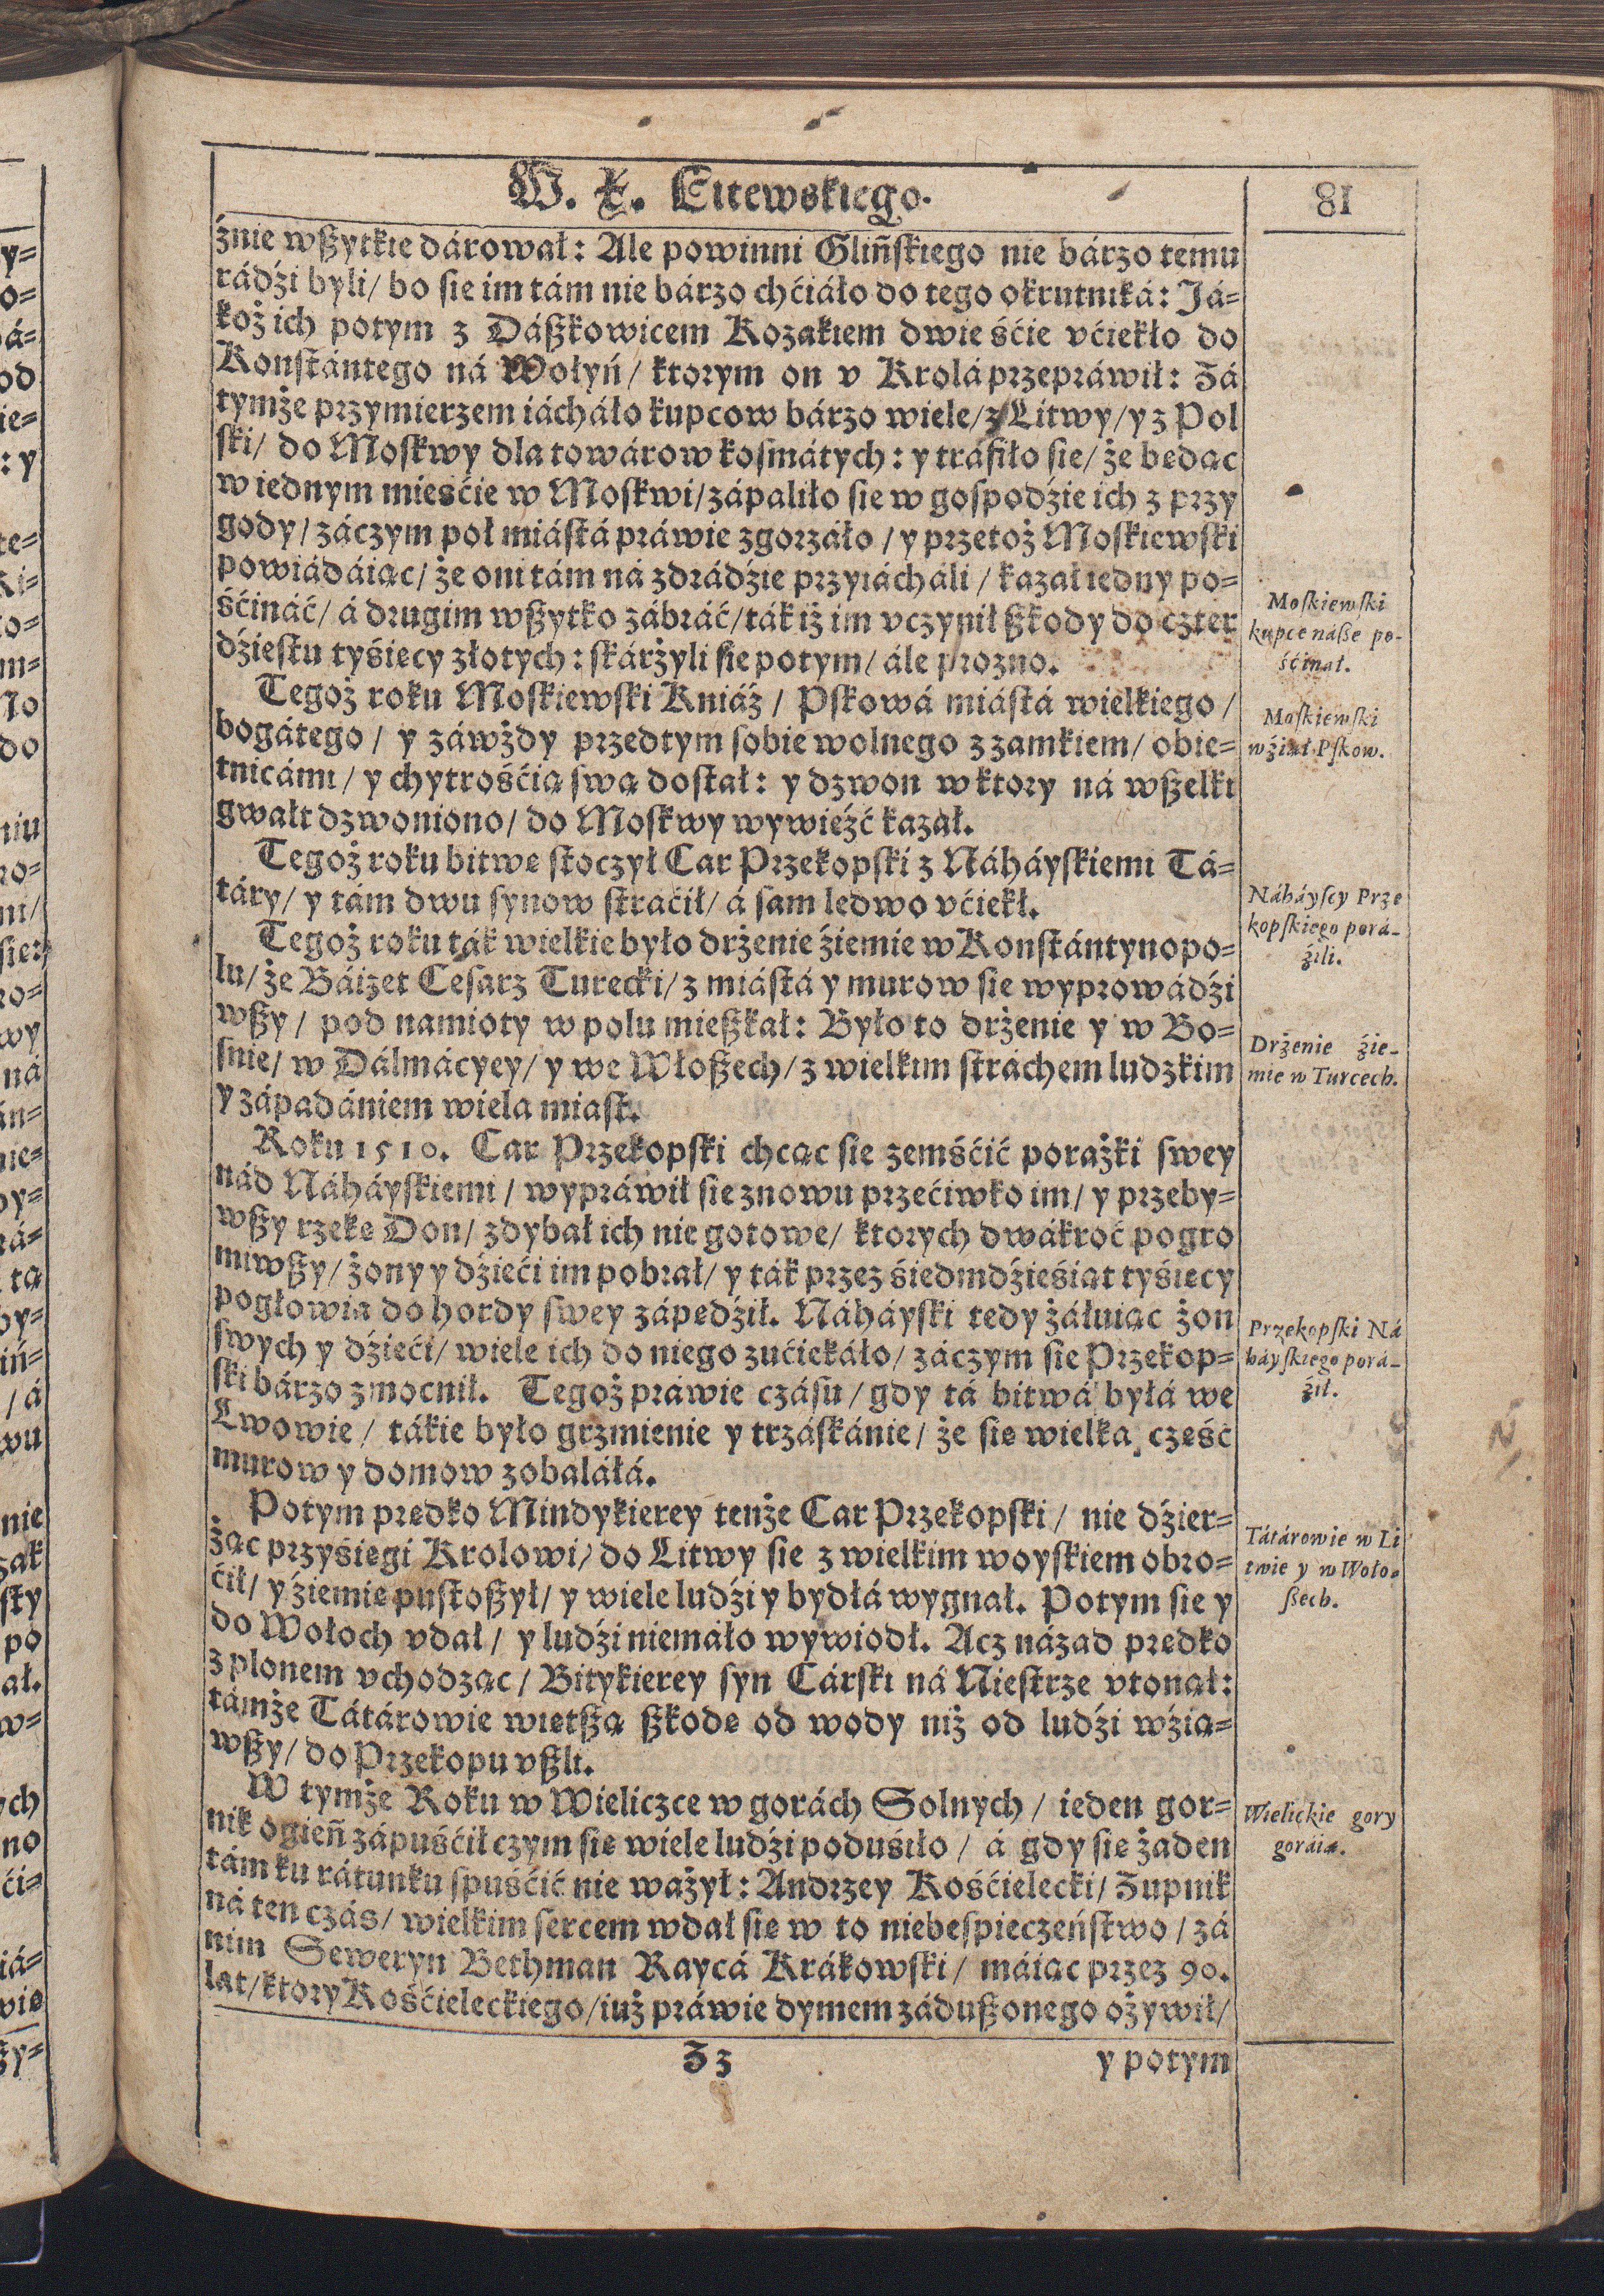 W. X. Litewskiego.
81
źnie wßytkie dárował: Ale powinni Gliñskiego nie bárzo temu
rádźi byli/ bo sie im tám nie bárzo chćiáło do tego okrutniká: Já=
koż ich potym z Dáßkowicem Kozakiem dwie śćie vćiekło do
Konstántego ná Wołyń/ ktorym on v Krolá przepráwił: Zá
tymże przymierzem iácháło kupcow bárzo wiele/ z Litwy/ y z Pol
ski/ do Moskwy dla towárow kosmátych: y tráfiło sie/ że bedąc
w iednym mieśćie w Moskwi/ zápaliło sie w gospodźie ich z przy
gody/ záczym poł miástá práwie zgorzáło/ y przetoż Moskiewski
powiádáiąc/ że oni tám ná zdrádźie przyiácháli/ kazał iedny po=
śćináć/ á drugim wßytko zábráć/ ták iż im vczynił ßkody do czter
dźiestu tyśiecy złotych: skárżyli sie potym/ ále prozno.
Moskiewski
kupce náße po-
śćinał.
Tegoż roku Moskiewski Kniáź/ Pskowá miástá wielkiego/
bogátego/ y záwżdy przedtym sobie wolnego z zamkiem/ obie=
tnicámi/ y chytrośćią swą dostał: y dzwon w ktory ná wßelki
gwałt dzwoniono/ do Moskwy wywieźć kazał.
Moskiewski
wźiął Pskow.
Tegoż roku bitwe stoczył Car Przekopski z Náháyskiemi Tá=
táry/ y tám dwu synow stráćił/ á sam ledwo vćiekł.
Náháyscy Prze
kopskiego porá-
źili.
Tegoż roku ták wielkie było drżenie źiemie w Konstántynopo=
lu/ że Báizet Cesarz Turecki/ z miástá y murow sie wyprowádźi
wßy/ pod namioty w polu mießkał: Było to drżenie y w Bo=
snie/ w Dálmácyey/ y we Włoßech/ z wielkim stráchem ludzkim
y západániem wiela miast.
Drżenie źie-
mie w Turcech.
Roku 1510. Car Przekopski chcąc sie zemśćić porażki swey
nád Náháyskiemi/ wypráwił sie znowu przećiwko im/ y przeby=
wßy rzeke Don/ zdybał ich nie gotowe/ ktorych dwákroć pogro
miwßy/ żony y dźieći im pobrał/ y ták przez śiedmdźieśiąt tyśiecy
pogłowia do hordy swey zápedźił. Náháyski tedy żáłuiąc żon
swych y dźieći/ wiele ich do niego zućiekáło/ záczym sie Przekop=
ski bárzo zmocnił. Tegoż práwie czásu/ gdy tá bitwá byłá we
Lwowie/ tákie było grzmienie y trzáskánie/ że sie wielka część
murow y domow zobaláłá.
Przekopski Ná
háyskiego porá-
źił.
Potym predko Mindykierey tenże Car Przekopski/ nie dźier=
żąc przyśiegi Krolowi/ do Litwy sie z wielkim woyskiem obro=
ćił/ y źiemie pustoßył/ y wiele ludźi y bydłá wygnał. Potym sie y
do Wołoch vdał/ y ludźi niemáło wywiodł. Acz názad predko
z plonem vchodząc/ Bitykierey syn Cárski ná Niestrze vtonął:
támże Tátárowie wietßą ßkode od wody niż od ludźi wźią=
wßy/ do Przekopu vßli.
Tátárowie w Li
twie y w Woło-
ßech.
W tymże Roku w Wieliczce w gorách Solnych/ ieden gor=
nik ogieñ zápuśćił czym sie wiele ludźi poduśiło/ á gdy sie żaden
tám ku rátunku spuśćić nie ważył: Andrzey Kośćielecki/ Zupnik
ná ten czás/ wielkim sercem wdał sie w to niebespieczeństwo/ zá
nim Seweryn Bethman Raycá Krákowski/ máiąc przez 90.
lat/ ktory Kośćieleckiego/ iuż práwie dymem zádußonego ożywił/
Wielickie gory
goráią.
Zz
y potym